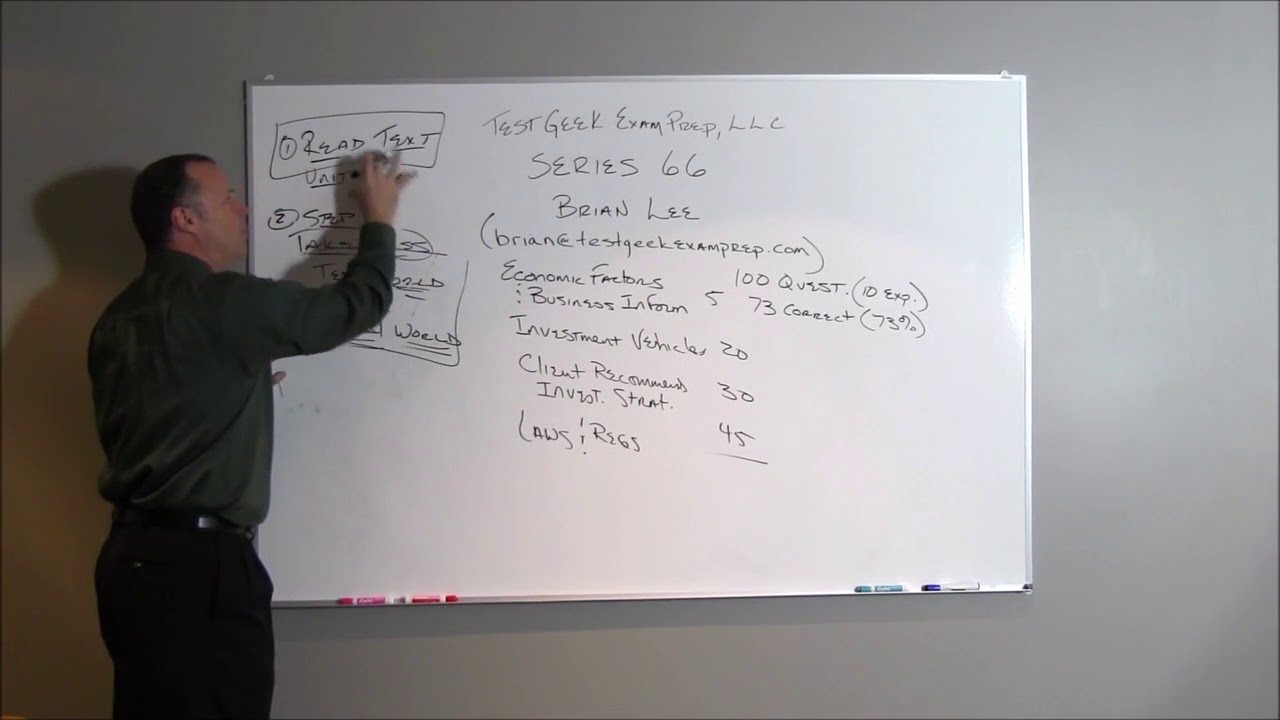 ① READ TEXT
UNIT
②
TAKE
WORLD
WORLD
TEST GEEK EXAM PREP, LLC
SERIES 66
BRIAN LEE
(brian@testgeekexamprep.com)
ECONOMIC FACTORS
& BUSINESS INFORM 5
INVESTMENT VEHICLES 20
CLIENT RECOMMENDS
INVEST. STRAT. 30
LAWS & REGS 45
100 QUEST. (10 EXP.)
73 CORRECT (73%)